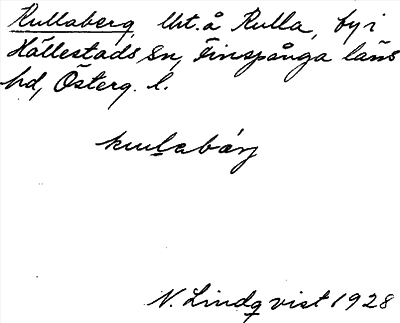 Kullaberg, lht. å Kulla, by i
Hällestads Sn, Finspånga läns
hd, Österg. l.
kɯlabárj
N. Lindqvist 1928